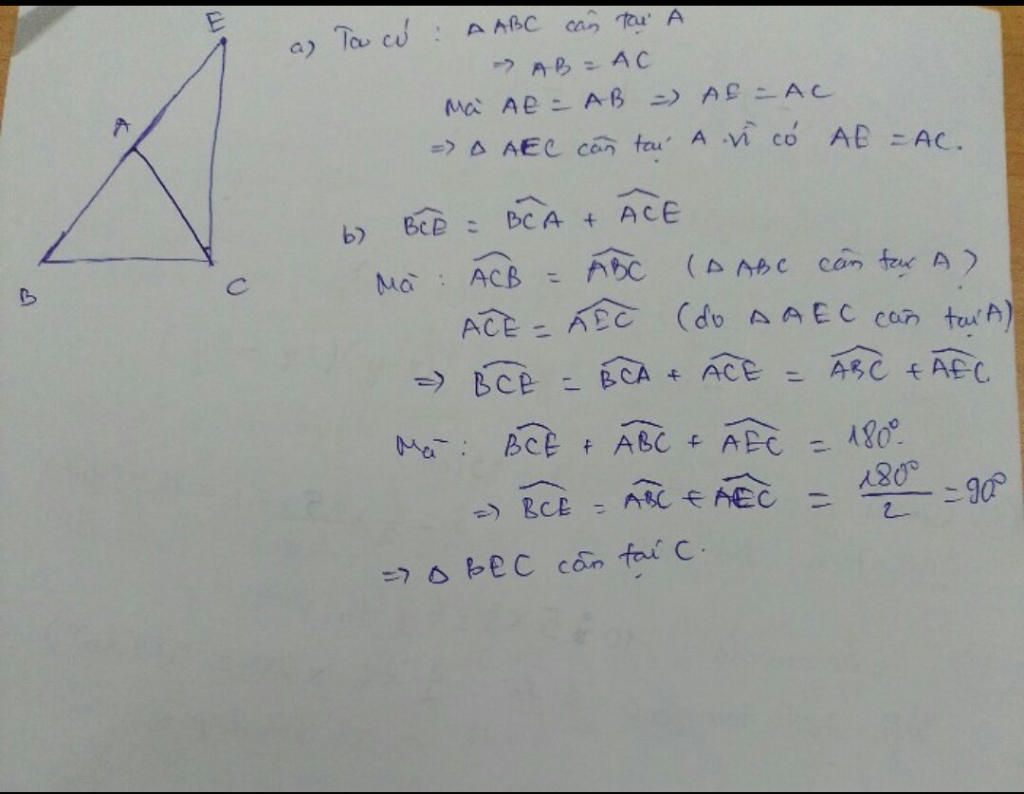 E
A
B
C
a) Ta có : Δ ABC cân tại A
=> AB = AC
Mà AE = AB => AE = AC
=> Δ AEC cân tại A vì có AE = AC.
b) \widehat{BCE} = \widehat{BCA} + \widehat{ACE}
Mà : \widehat{ACB} = \widehat{ABC} (Δ ABC cân tại A)
\widehat{ACE} = \widehat{AEC} (do Δ AEC cân tại A)
=> \widehat{BCE} = \widehat{BCA} + \widehat{ACE} = \widehat{ABC} + \widehat{AEC}
Mà : \widehat{BCE} + \widehat{ABC} + \widehat{AEC} = 180°.
=> \widehat{BCE} = \widehat{ABC} + \widehat{AEC} = \frac{180°}{2} = 90°
=> Δ BEC cân tại C.